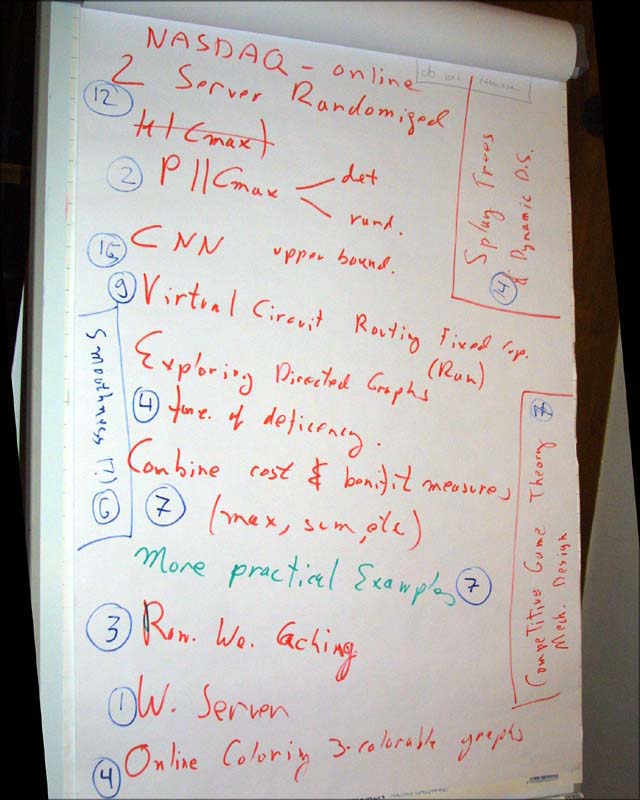 NASDAQ - online
do not remove
2 Server Randomized
12
H|Cmax)
2 P||Cmax
det
rand.
15 CNN upper bound.
9 Virtual Circuit Routing Fixed Cap.
(Ran)
Exploring Directed Graphs
4 func. of deficency.
Combine cost & benifit measures
7 (max, sum, etc)
More practical Examples 7
3 Ran. We. Caching
1 W. Server
4 Online Coloring 3-colorable graphs
Splay Trees
& Dynamic D.S.
14
Smoothness (?) 6
Competitive Game Theory 7
Mech. Design